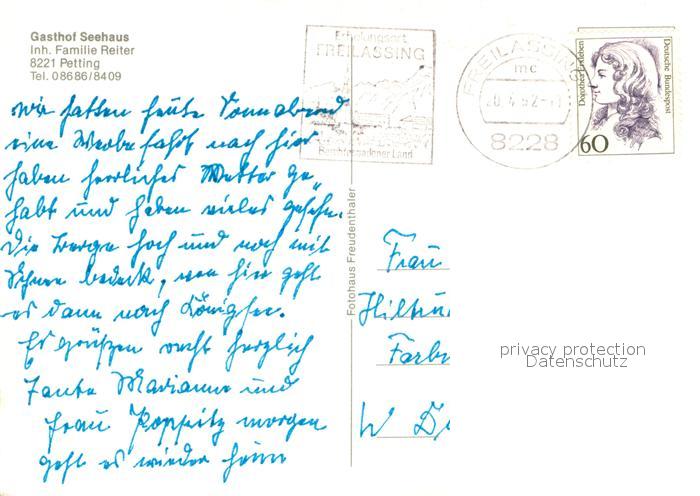 Gasthof Seehaus
Inh. Familie Reiter
8221 Petting
Tel. 08686/8409
Erholungsort
FREILASSING
Berchtesgadener Land
FREILASSING
mc
20.4.92
8228
Dorothea Erxleben
Deutsche Bundespost
60
wir hatten heute Sonnabend
eine Werbefahrt nach hier
haben herrliches Wetter ge-
habt und haben vieles gesehen.
Die Berge hoch und noch mit
Schnee bedeckt, von hier geht
es dann nach Königsee.
Es grüßen recht herzlich
Tante Marianne und
Frau Poppitz morgen
geht es wieder heim
Fotohaus Freudenthaler
Frau
Hiltru
Farb
W D
privacy protection
Datenschutz